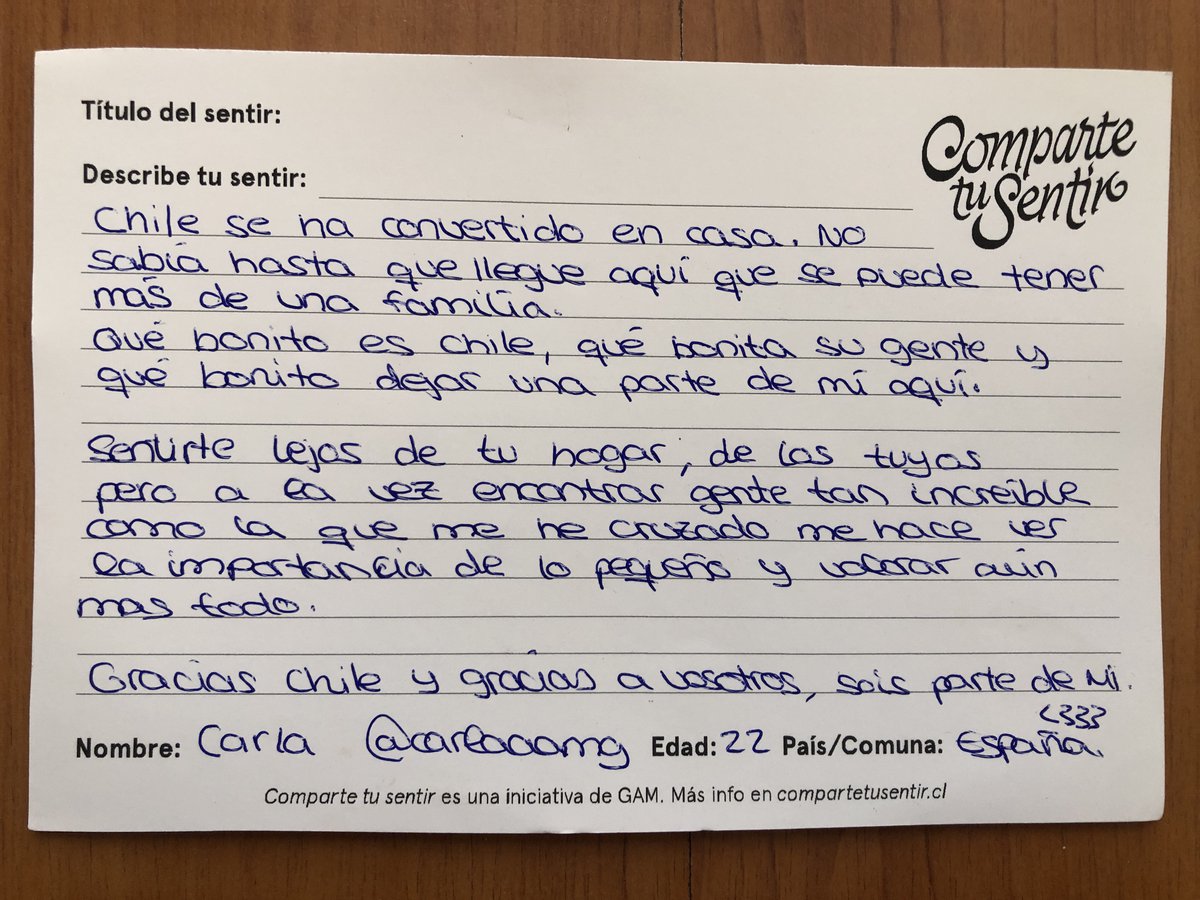 Título del sentir:
Comparte
tu Sentir
Describe tu sentir:
Chile se ha convertido en casa. No
sabía hasta que llegue aquí que se puede tener
más de una familia.
Qué bonito es Chile, qué bonita su gente y
qué bonito dejar una parte de mí aquí.
Sentirte lejos de tu hogar, de los tuyos
pero a la vez encontrar gente tan increíble
como la que me he cruzado me hace ver
la importancia de lo pequeño y valorar aún
mas todo.
Gracias Chile y gracias a vosotros, sois parte de Mi.
<333
Nombre: Carla @carlaaamg Edad: 22 País/Comuna: España.
Comparte tu sentir es una iniciativa de GAM. Más info en compartetusentir.cl